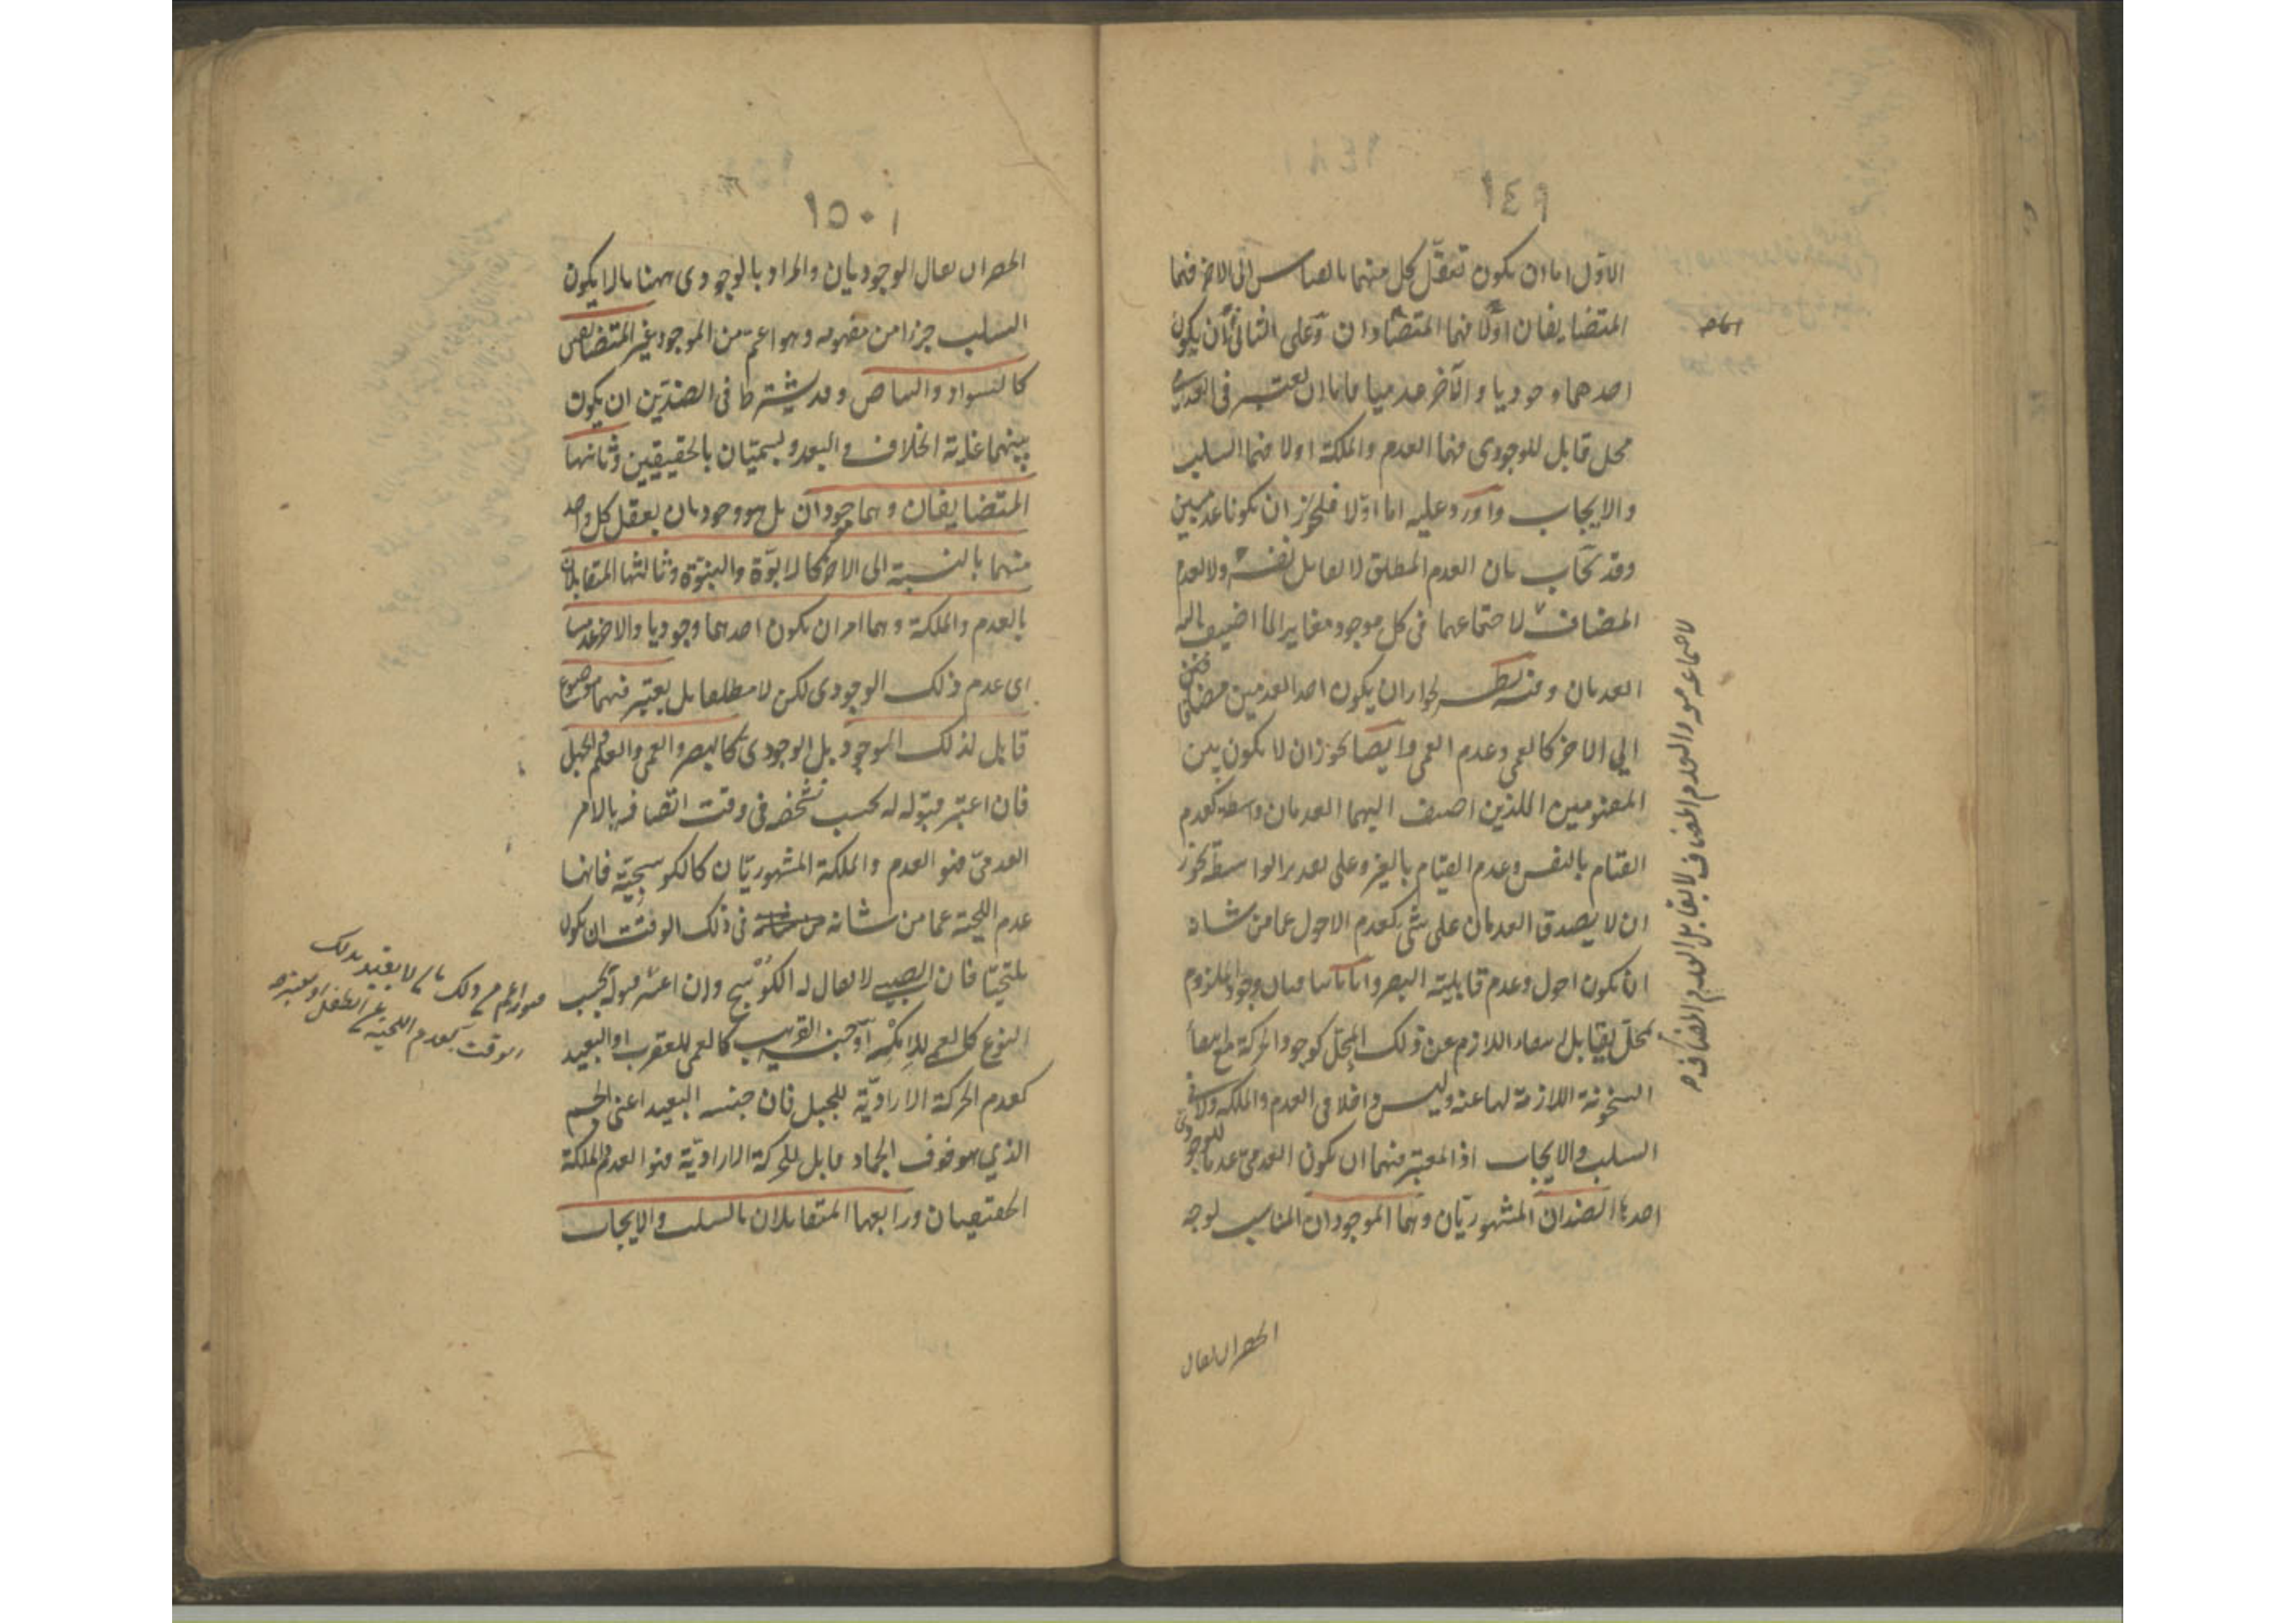 ١٤٩
الاول اما ان يكون تعقّل كل منهما بالقياس الى الاخر فهما
المتضايفان اولا فهما المتضادان وعلى الثانى ان يكون
احدهما وجوديا والآخر عدميا فاما ان يعتبر فى العدمى
محل قابل للوجودى فهما العدم والملكة اولا فهما السلب
والايجاب واورد عليه اما اوّلا فلجواز ان يكونا عدميين
وقد يجاب بان العدم المطلق لا يقابل نفسه ولا العدم
المضاف لاجتماعهما فى كل موجود مغاير لما اضيف اليه
العدمان وفيه نظر لجواز ان يكون احد العدمين مضافا
الي الاخر كالعمى وعدم العمى وايضا يجوز ان لا يكون بين
المفهومين اللذين اضيف اليهما العدمان واسطة كعدم
القيام بالنفس وعدم القيام بالغير وعلى تقدير الواسطة يجوز
ان لا يصدق العدمان على شئ كعدم الاحول عما من شانه
ان يكون احول وعدم قابلية البصر واما ثانيا فبان وجود الملزوم
لمحل يقابل انتفاء اللازم عن ذلك المحل كوجود الحركة لجسم مع انتفاء
السخونة اللازمة لها عنه وليس داخلا فى العدم والملكة ولا فى
السلب والايجاب اذ المعتبر فيهما ان يكون العدمى عدما للوجودى
احدها الضدان المشهوريّان وهما الموجودان المناسب لوجه
لاجتماعه معه والعدم المضاف لا يقابل العدم المضاف
الحصر ان يقال
١٥٠
الحصر ان يقال الوجوديان والمراد بالوجودى ههنا ما لا يكون
السلب جزءا من مفهومه وهو اعم من الموجود غير المتضايفين
كالسواد والبياض وقد يشترط فى الضدّين ان يكون
بينهما غاية الخلاف والبعد ويسميّان بالحقيقيين وثانيها
المتضايفان وهما موجودان بل هو وجوديان يعقل كل واحد
منهما بالنسبة الى الاخر كالابوّة والبنوّة وثالثها المتقابلان
بالعدم والملكة وهما امران يكون احدهما وجوديا والاخر عدميا
اى عدم ذلك الوجودى لكن لا مطلقا بل يعتبر فيهما موضوع
قابل لذلك الموجود بل الوجودى كالبصر والعمى والعلم والجهل
فان اعتبر قبوله له بحسب شخصه فى وقت اتصافه بالامر
العدمىّ فهو العدم والملكة المشهوريّان كالكوسجيّة فانها
عدم اللحية عما من شانه فى ذلك الوقت ان يكون
ملتحيا فان الصبى لا يقال له الكوسج وان اعتبر قبوله بحسب
النوع كالعمى للاكمه او جنسه القريب كالعمى للعقرب او البعيد
كعدم الحركة الاراديّة للجبل فان جنسه البعيد اعنى الجسم
الذي هو فوق الجماد قابل للحركة الاراديّة فهو العدم والملكة
الحقيقيان ورابعها المتقابلان بالسلب والايجاب
الوقت كعدم اللحية عن الطفل